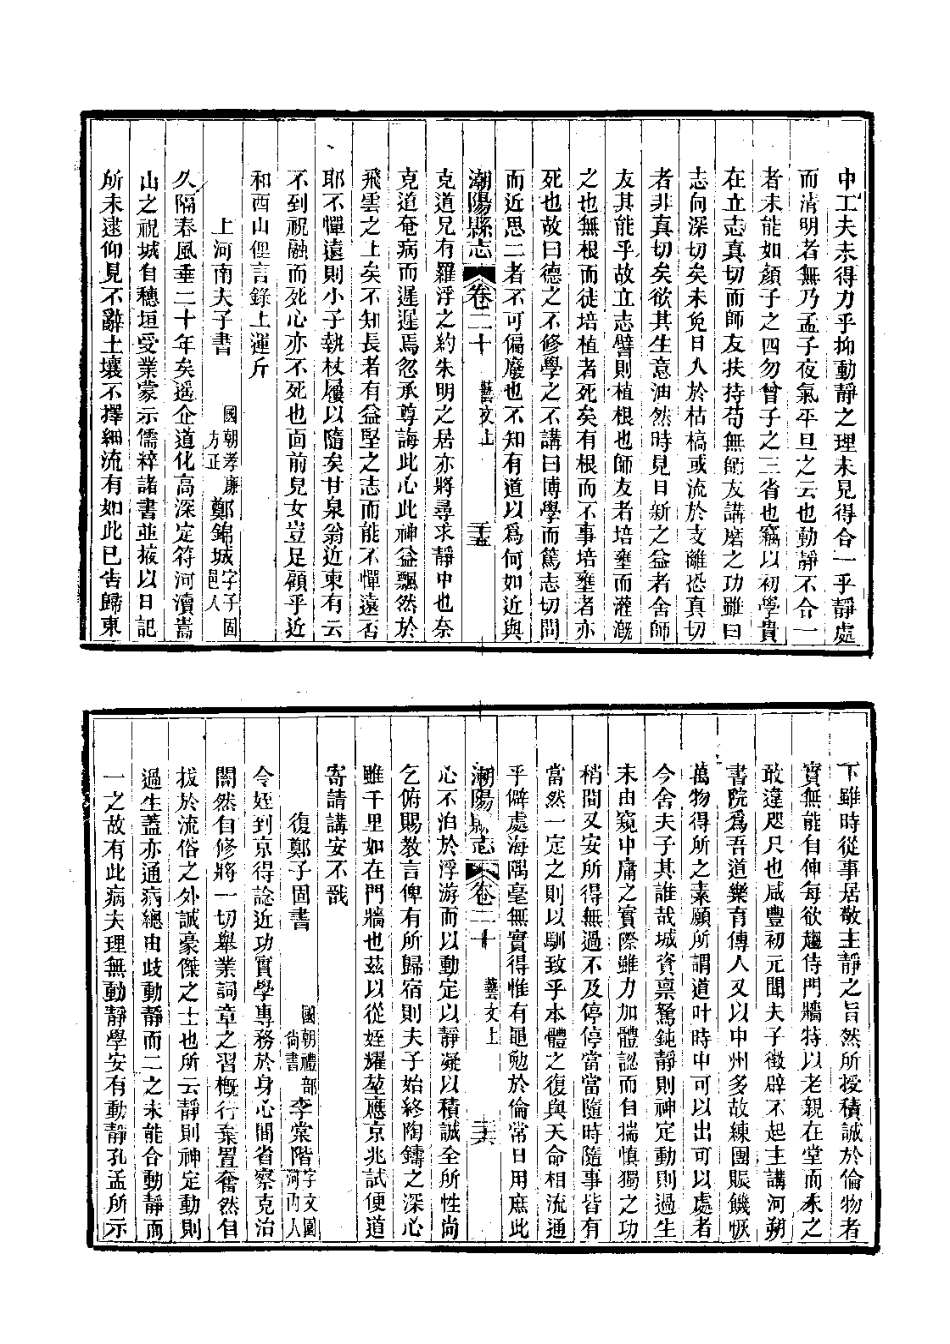 中工夫未得力乎抑動靜之理未見得合一乎靜處
而清明者無乃孟子夜氣平旦之云也動靜不合一
者未能如顏子之四勿曾子之三省也竊以初學貴
在立志真切而師友扶持苟無師友講磨之功雖曰
志向深切矣未免日入於枯槁或流於支離恐真切
者非真切矣欲其生意油然時見日新之益者舍師
友其能乎故立志譬則植根也師友者培壅而灌漑
之也無根而徒培植者死矣有根而不事培壅者亦
死也故曰德之不修學之不講曰博學而篤志切問
而近思二者不可偏廢也不知有道以爲何如近與
潮陽縣志 卷二十 藝文上 三十五
克道兄有羅浮之約朱明之居亦將尋求靜中也奈
克道奄病而遲遲焉忽承尊誨此心此神益飄然於
飛雲之上矣不知長者有益堅之志而能不憚遠否
耶不憚遠則小子執杖屨以隨矣甘泉翁近柬有云
不到祝融而死心亦不死也面前兒女豈足顧乎近
和西山俚言錄上運斤
上河南夫子書 國朝孝廉方正 鄭錦城 字子固邑人
久隔春風垂二十年矣遥企道化高深定符河瀆嵩
山之祝城自穗垣受業蒙示儒粹諸書並抜以日記
所未逮仰見不辭土壤不擇細流有如此已告歸東
下雖時從事居敬主靜之旨然所授積誠於倫物者
實無能自伸每欲趨侍門牆特以老親在堂而未之
敢違咫尺也咸豐初元聞夫子徵辟不起主講河朔
書院爲吾道樂育傳人又以中州多故練團賑饑恢
萬物得所之素願所謂道叶時中可以出可以處者
今舍夫子其誰哉城資稟駑鈍靜則神定動則過生
末由窺中庸之實際雖力加體認而自揣慎獨之功
稍間又安所得無過不及停停當當隨時隨事皆有
當然一定之則以馴致乎本體之復與天命相流通
乎僻處海隅毫無實得惟有黽勉於倫常日用庶此
潮陽縣志 卷二十 藝文上 三十六
心不泊於浮游而以動定以靜凝以積誠全所性尚
乞俯賜教言俾有所歸宿則夫子始終陶鑄之深心
雖千里如在門牆也茲以從姪耀堃應京兆試便道
寄請講安不戬
復鄭子固書 國朝禮部尚書 李棠階 字文園河內人
令姪到京得諗近功實學專務於身心間省察克治
闇然自修將一切舉業詞章之習概行棄置奮然自
拔於流俗之外誠豪傑之士也所云靜則神定動則
過生蓋亦通病總由歧動靜而二之未能合動靜而
一之故有此病夫理無動靜學安有動靜孔孟所示